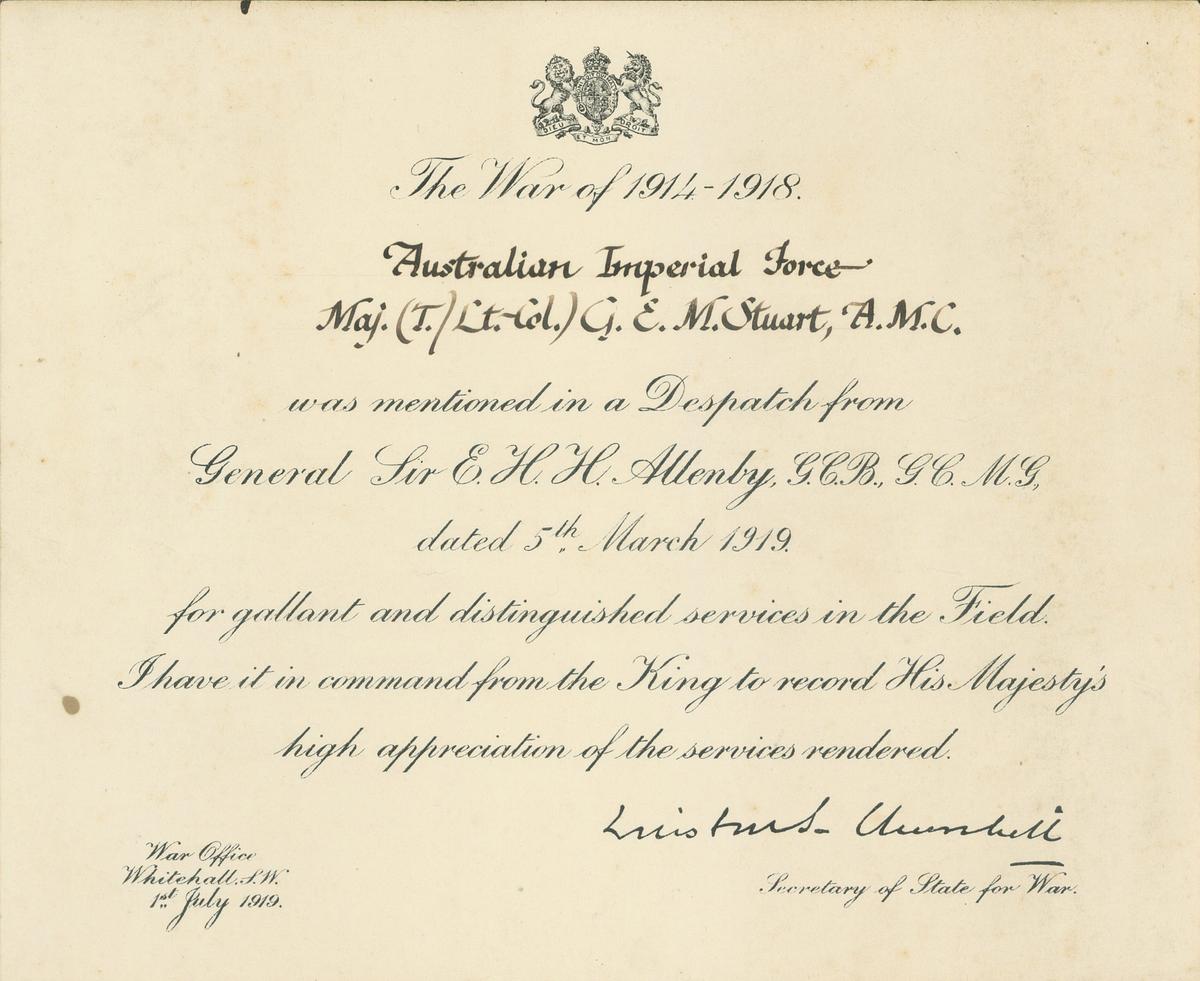 DIEU ET MON DROIT
The War of 1914-1918.
Australian Imperial Force
Maj. (T./Lt.-Col.) G. E. M. Stuart, A.M.C.
was mentioned in a Despatch from
General Sir E. H. H. Allenby, G.C.B., G.C.M.G.,
dated 5th March 1919.
for gallant and distinguished services in the Field.
I have it in command from the King to record His Majesty's
high appreciation of the services rendered.
Winston S. Churchill
War Office
Whitehall. S.W.
1st July 1919.
Secretary of State for War.